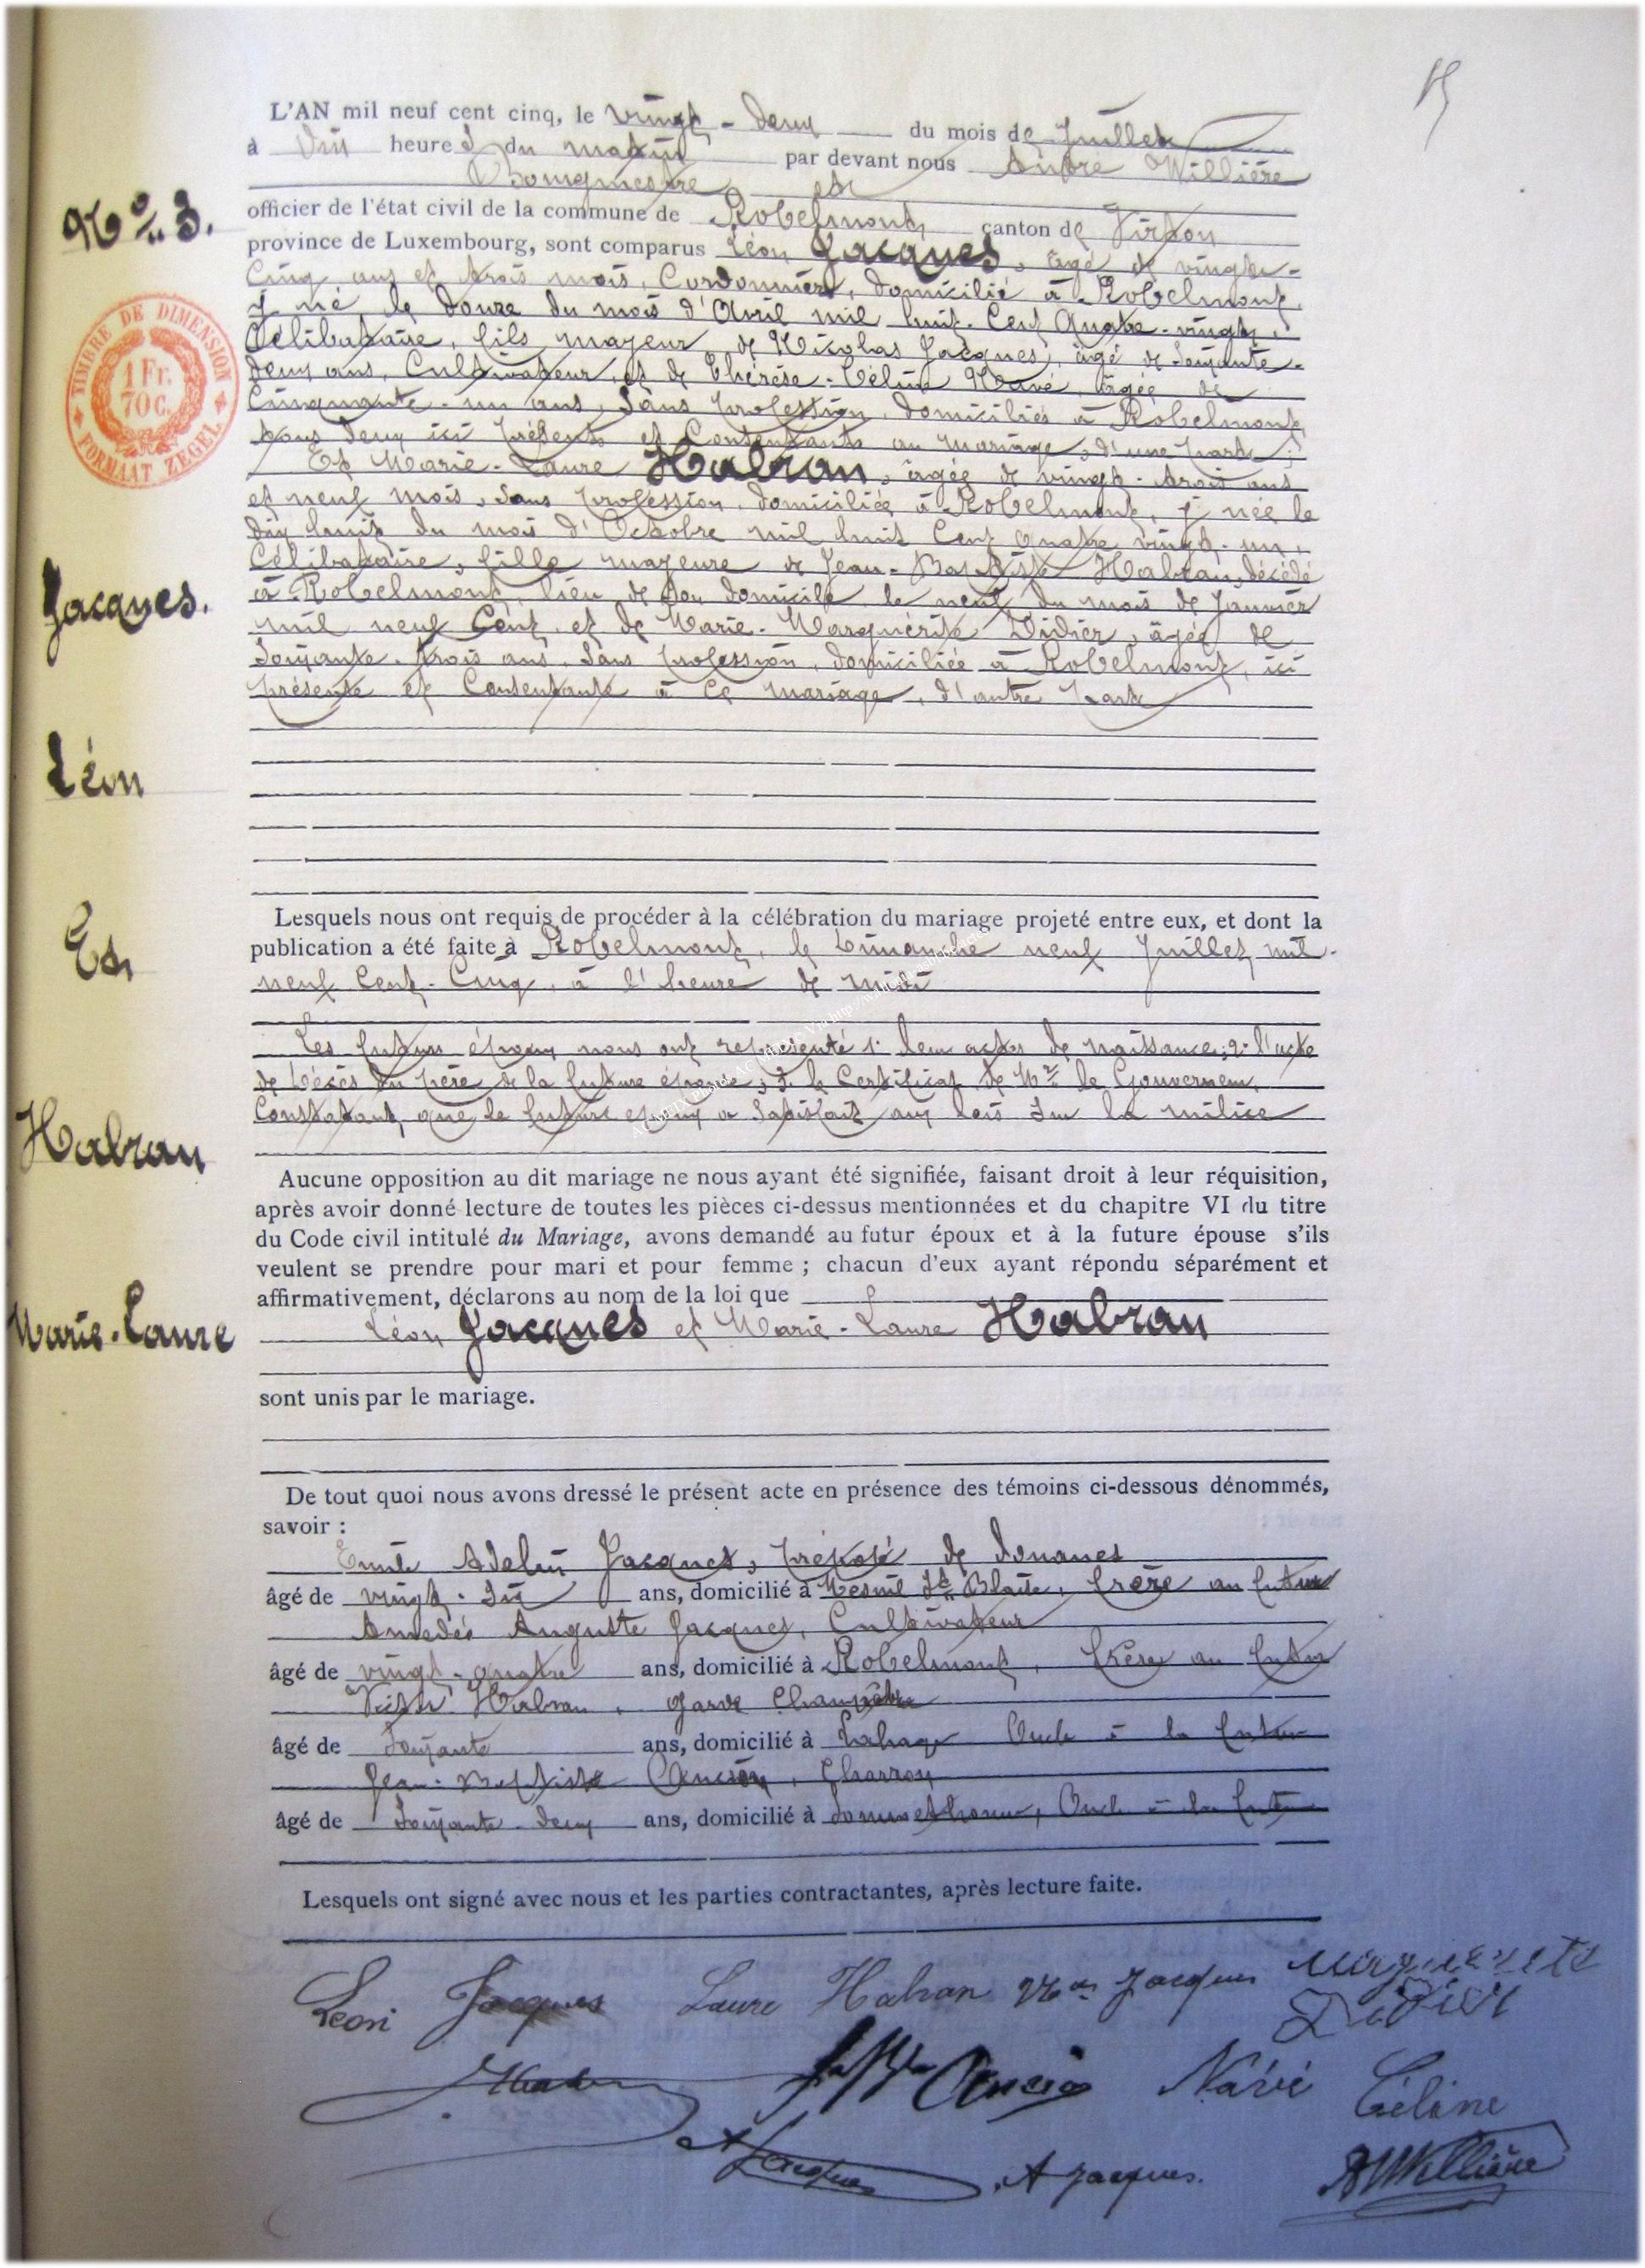 15
L'AN mil neuf cent cinq, le vingt-deux du mois de Juillet
à dix heures du matin par devant nous André Willière
Bourgmestre et
N° 3.
officier de l'état civil de la commune de Robelmont canton de Virton
province de Luxembourg, sont comparus Léon Jacques, âgé de vingt-
cinq ans et trois mois, Cordonnier, domicilié à Robelmont,
y né le douze du mois d'Avril mil huit Cent Quatre-vingt,
Célibataire, fils majeur de Nicolas Jacques, âgé de soixante-
deux ans, Cultivateur, et de Thérèse-Céline Navé, âgée de
Cinquante-un ans, sans profession, domiciliés à Robelmont,
tous deux ici présents et Consentants au mariage, d'une part;
Et Marie-Laure Habran, âgée de vingt-trois ans
et neuf mois, sans profession, domiciliée à Robelmont, y née le
dix huit du mois d'Octobre mil huit Cent quatre vingt-un,
Célibataire, fille majeure de Jean-Baptiste Habran, décédé
à Robelmont, lieu de son domicile, le neuf du mois de Janvier
mil neuf Cent, et de Marie-Marguérite Didier, âgée de
soixante-trois ans, sans profession, domiciliée à Robelmont, ici
présente et Consentante à ce mariage, d'autre part
TIMBRE DE DIMENSION
1 Fr.
70 C.
FORMAAT ZEGEL
Jacques.
Léon
Et
Habran
Marie-Laure
Lesquels nous ont requis de procéder à la célébration du mariage projeté entre eux, et dont la
publication a été faite à Robelmont, le Dimanche neuf Juillet mil-
neuf Cent-Cinq, à l'heure de midi
Les futurs époux nous ont représenté 1° leurs actes de naissance; 2° l'acte
de Décès du père de la future épouse; 3° le Certificat de Mr le Gouverneur
Constatant que le futur époux a satisfait aux lois sur la milice
Aucune opposition au dit mariage ne nous ayant été signifiée, faisant droit à leur réquisition,
après avoir donné lecture de toutes les pièces ci-dessus mentionnées et du chapitre VI du titre
du Code civil intitulé du Mariage, avons demandé au futur époux et à la future épouse s'ils
veulent se prendre pour mari et pour femme ; chacun d'eux ayant répondu séparément et
affirmativement, déclarons au nom de la loi que
Léon Jacques et Marie-Laure Habran
sont unis par le mariage.
De tout quoi nous avons dressé le présent acte en présence des témoins ci-dessous dénommés,
savoir :
Emile Adelin Jacques, préposé de douanes
âgé de vingt-six ans, domicilié à Mesnil St Blaise, frère au futur
Amedée Auguste Jacques, Cultivateur
âgé de vingt-quatre ans, domicilié à Robelmont, frère au futur
Victor Habran, garde Champêtre
âgé de soixante ans, domicilié à Lahage Oncle à la future
Jean-Baptiste Ancion, Charron
âgé de soixante-deux ans, domicilié à Sommethonne, Oncle à la future
Lesquels ont signé avec nous et les parties contractantes, après lecture faite.
Léon Jacques Laure Habran Nas Jacques Marguerite
Didier
Habran J Bte Ancion Navé Céline
A Jacques A Jacques. A Willière